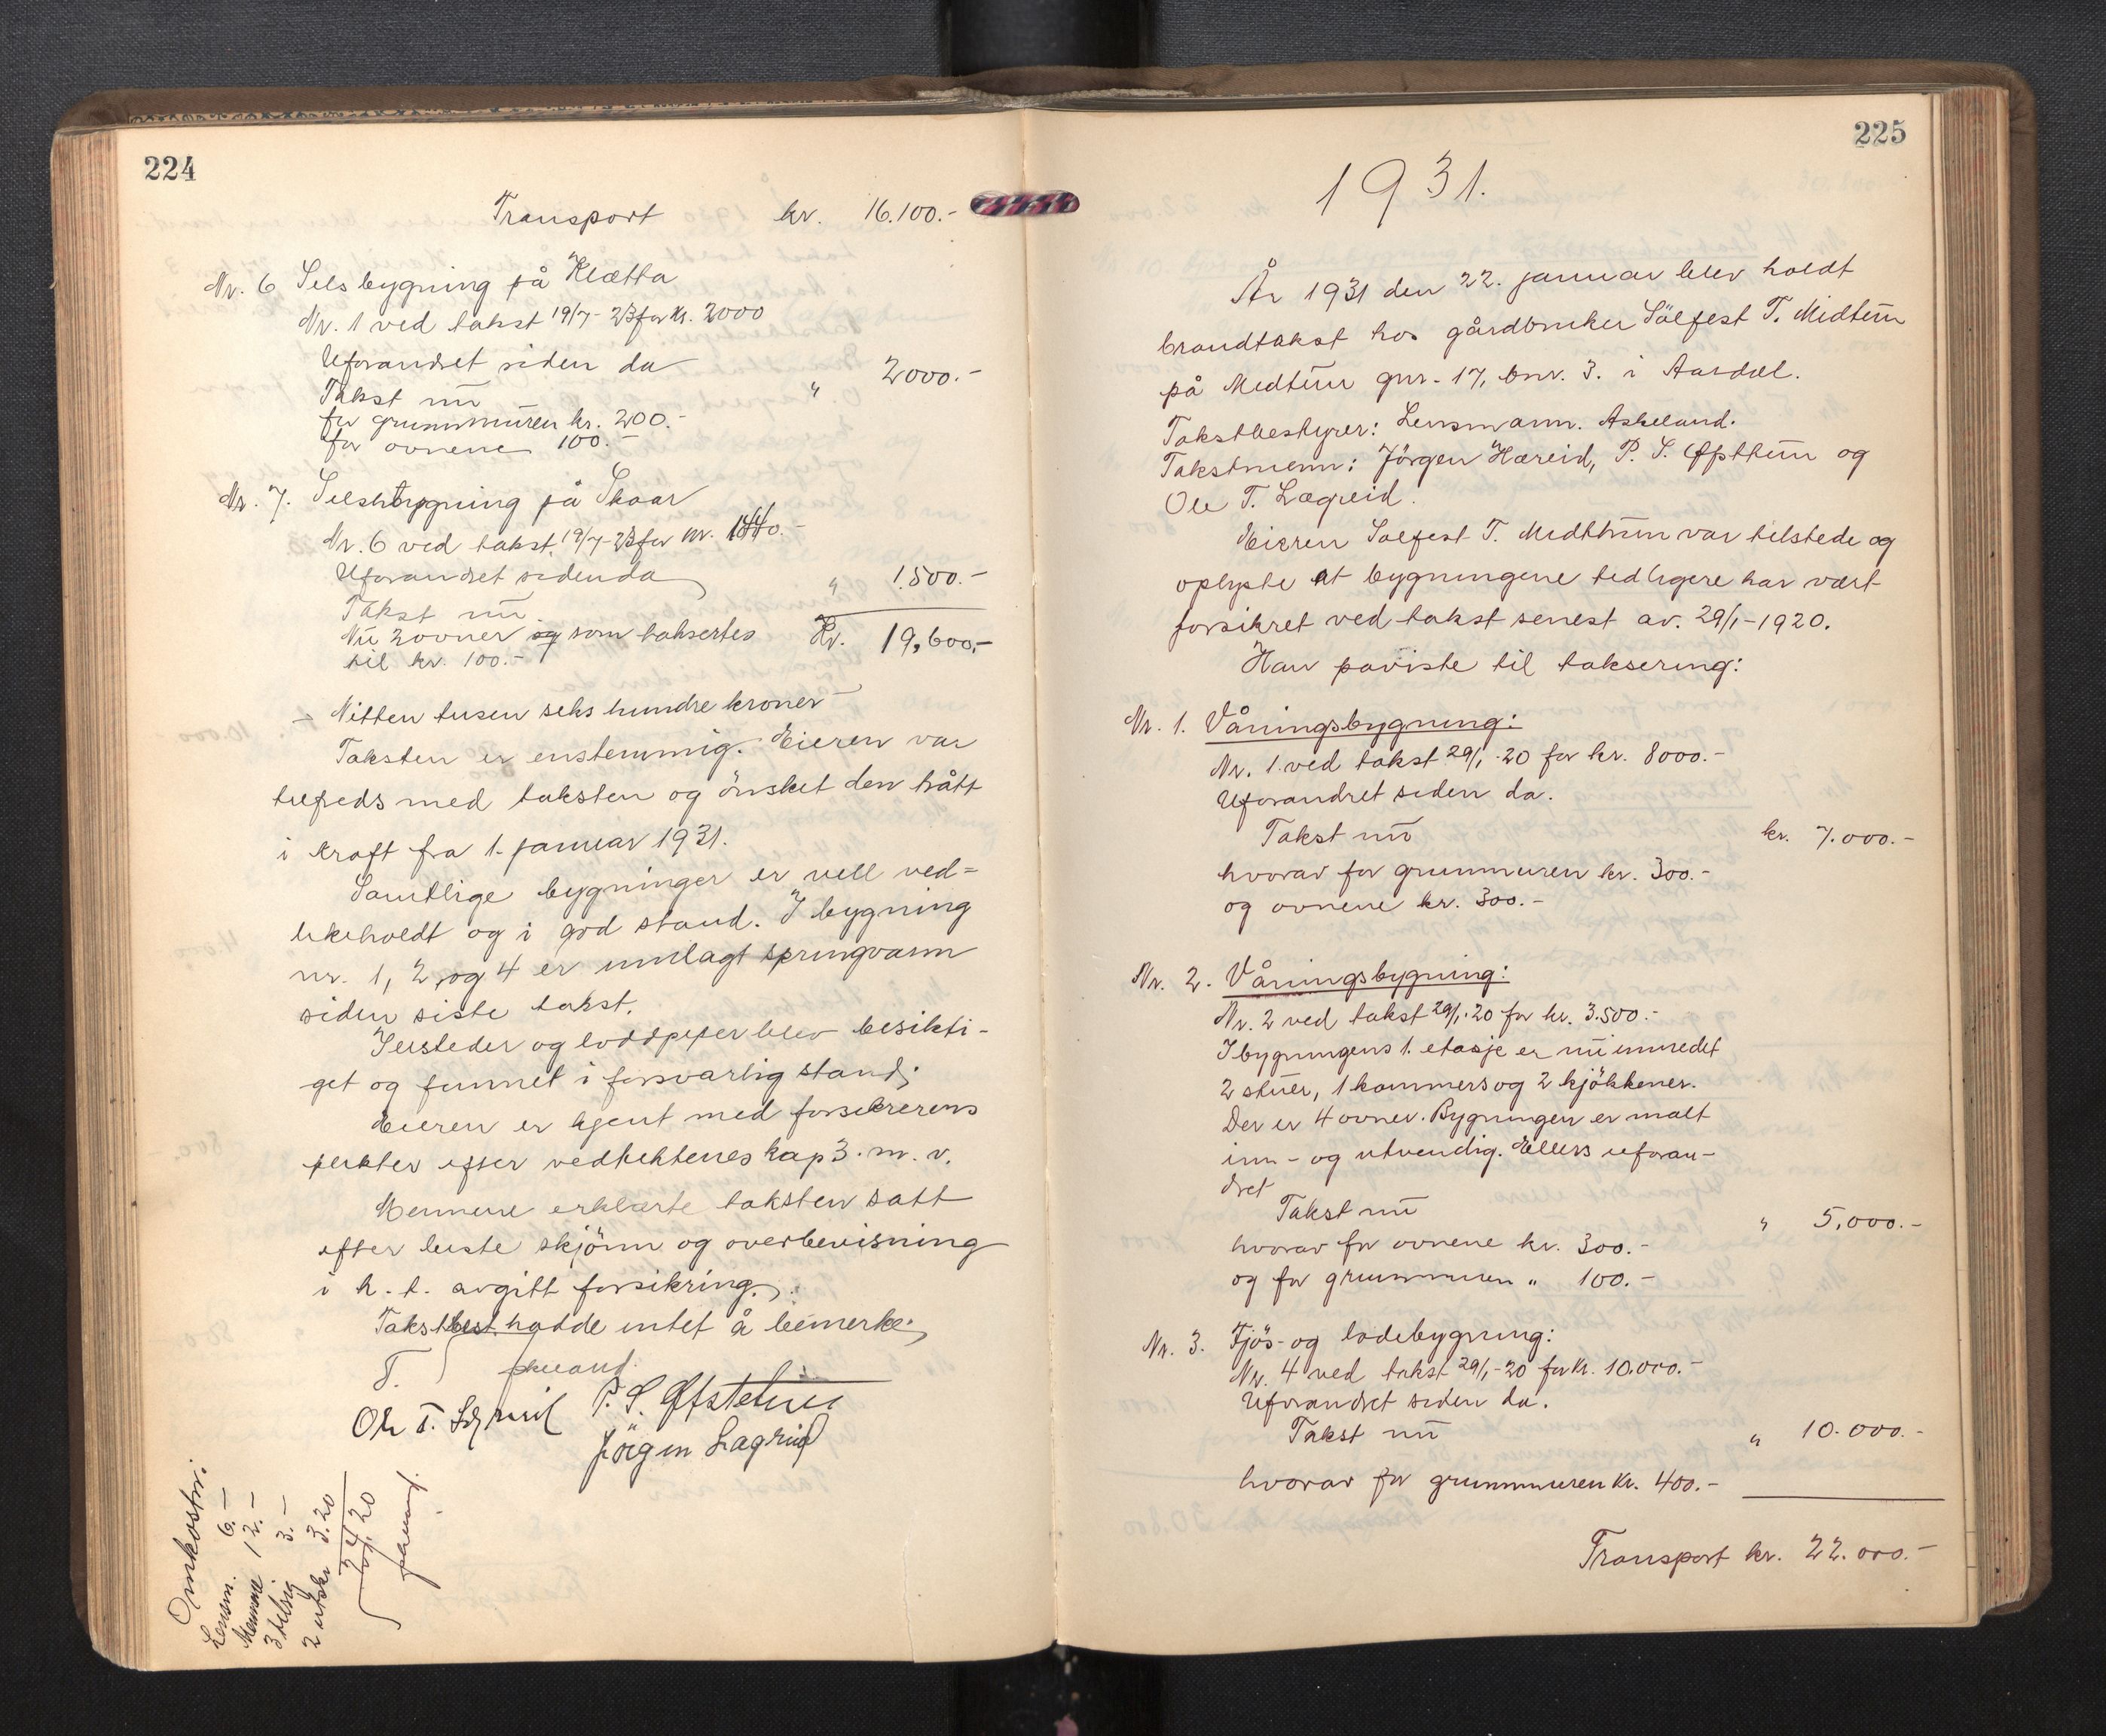 224
Transport kr. 16.100.-
Nr. 6 Selsbygning på Klætta
Nr. 1 ved takst 19/7-23 for kr. 2000
Uforandret siden da
Takst nu " 2000.-
for grunnmuren kr. 200.-
for ovnene 100.-
Nr. 7. Selsbygning på Skaar
Nr. 6 ved takst 19/7-23 for kr. 1440.-
Uforandret siden da
Takst nu " 1.500.-
Nu 2 ovner og som taksertes Kr. 19,600,-
til kr. 100.-
- Nitten tusen seks hundre kroner -
Taksten er enstemmig. Eieren var
tilfreds med taksten og ønsket den trått
i kraft fra 1. januar 1931.
Samtlige bygninger er vell ved=
likeholdt og i god stand. I bygning
nr. 1, 2, og 4 er innlagt springvann
siden siste takst.
Ildsteder og loddpiper blev besikti-
get og funnet i forsvarlig stand;
Eieren er kjent med forsikrerens
plikter efter vedtektenes kap 3. m. v.
Mennene erklærte taksten satt
efter beste skjønn og overbevisning
i h. t. avgitt forsikring.
Takstbest. hadde intet å bemerke.
T. Askeland.
Ole T. Lægreid P. S. Ofstehun
Jörgen Lægreid
Omkostn:
Lensm. 6.-
Mennene 12.-
3 tilsig 3.-
2 utskr 3.20
24,20
225
1931.
År 1931 den 22. januar blev holdt
brandtakst hos gårdbruker Sölfest T. Midtun
på Midtun gnr. 17, bnr. 3. i Aardal.
Takstbestyrer: Lensmann. Askeland.
Takstmenn: Jörgen Hæreid, P. S. Ofsthun og
Ole T. Lægreid.
Eieren Solfest T. Midthun var tilstede og
oplyste at bygningene tidligere har vært
forsikret ved takst senest av. 29/1-1920.
Han påviste til taksering:
Nr. 1. Våningsbygning:
Nr. 1 ved takst 29/1-20 for kr. 8000.-
Uforandret siden da.
Takst nu kr. 7.000.-
hvorav for grunnmuren kr. 300.-
og ovnene kr. 300.-
Nr. 2. Våningsbygning:
Nr. 2 ved takst 29/1-20 for kr. 3.500.-
I bygningens 1. etasje er nu innredet
2 stuer, 1 kammers og 2 kjökkener.
Der er 4 ovner. Bygningen er malt
inn- og utvendig. Ellers uforan-
dret
Takst nu " 5,000.-
hvorav for ovnene kr. 300.-
og for grunnmuren " 100.-
Nr. 3. Fjös- og ladebygning:
Nr. 4 ved takst 29/1-20 for kr. 10.000.-
Uforandret siden da.
Takst nu " 10.000.-
hvorav for grunnmuren kr. 400.-
Transport kr. 22.000.-